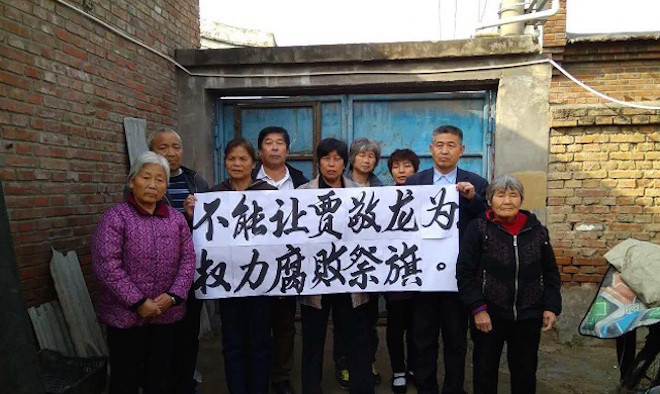 不能让贾敬龙为
权力腐败祭旗。